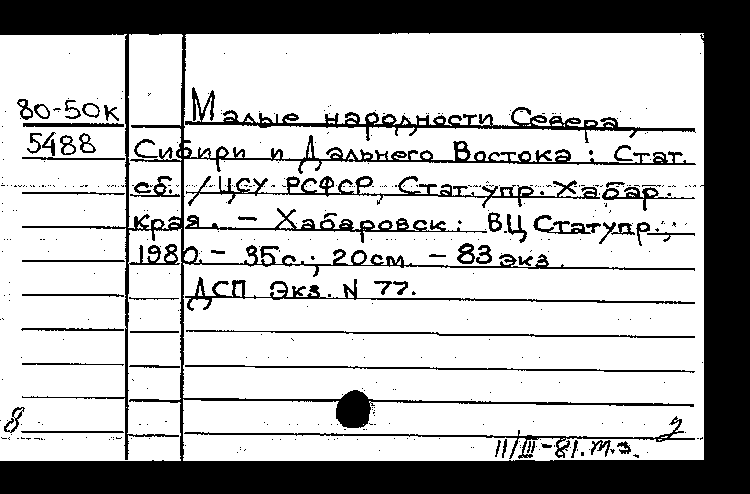 80-50к Малые народности Севера,
5488 Сибири и Дальнего Востока : Стат.
сб. / ЦСУ РСФСР, Стат. упр. Хабар.
края. – Хабаровск : ВЦ Статупр.,
1980. – 35 с.; 20 см. – 83 экз.
ДСП. Экз. N 77.
8
11/III-81. т.з.